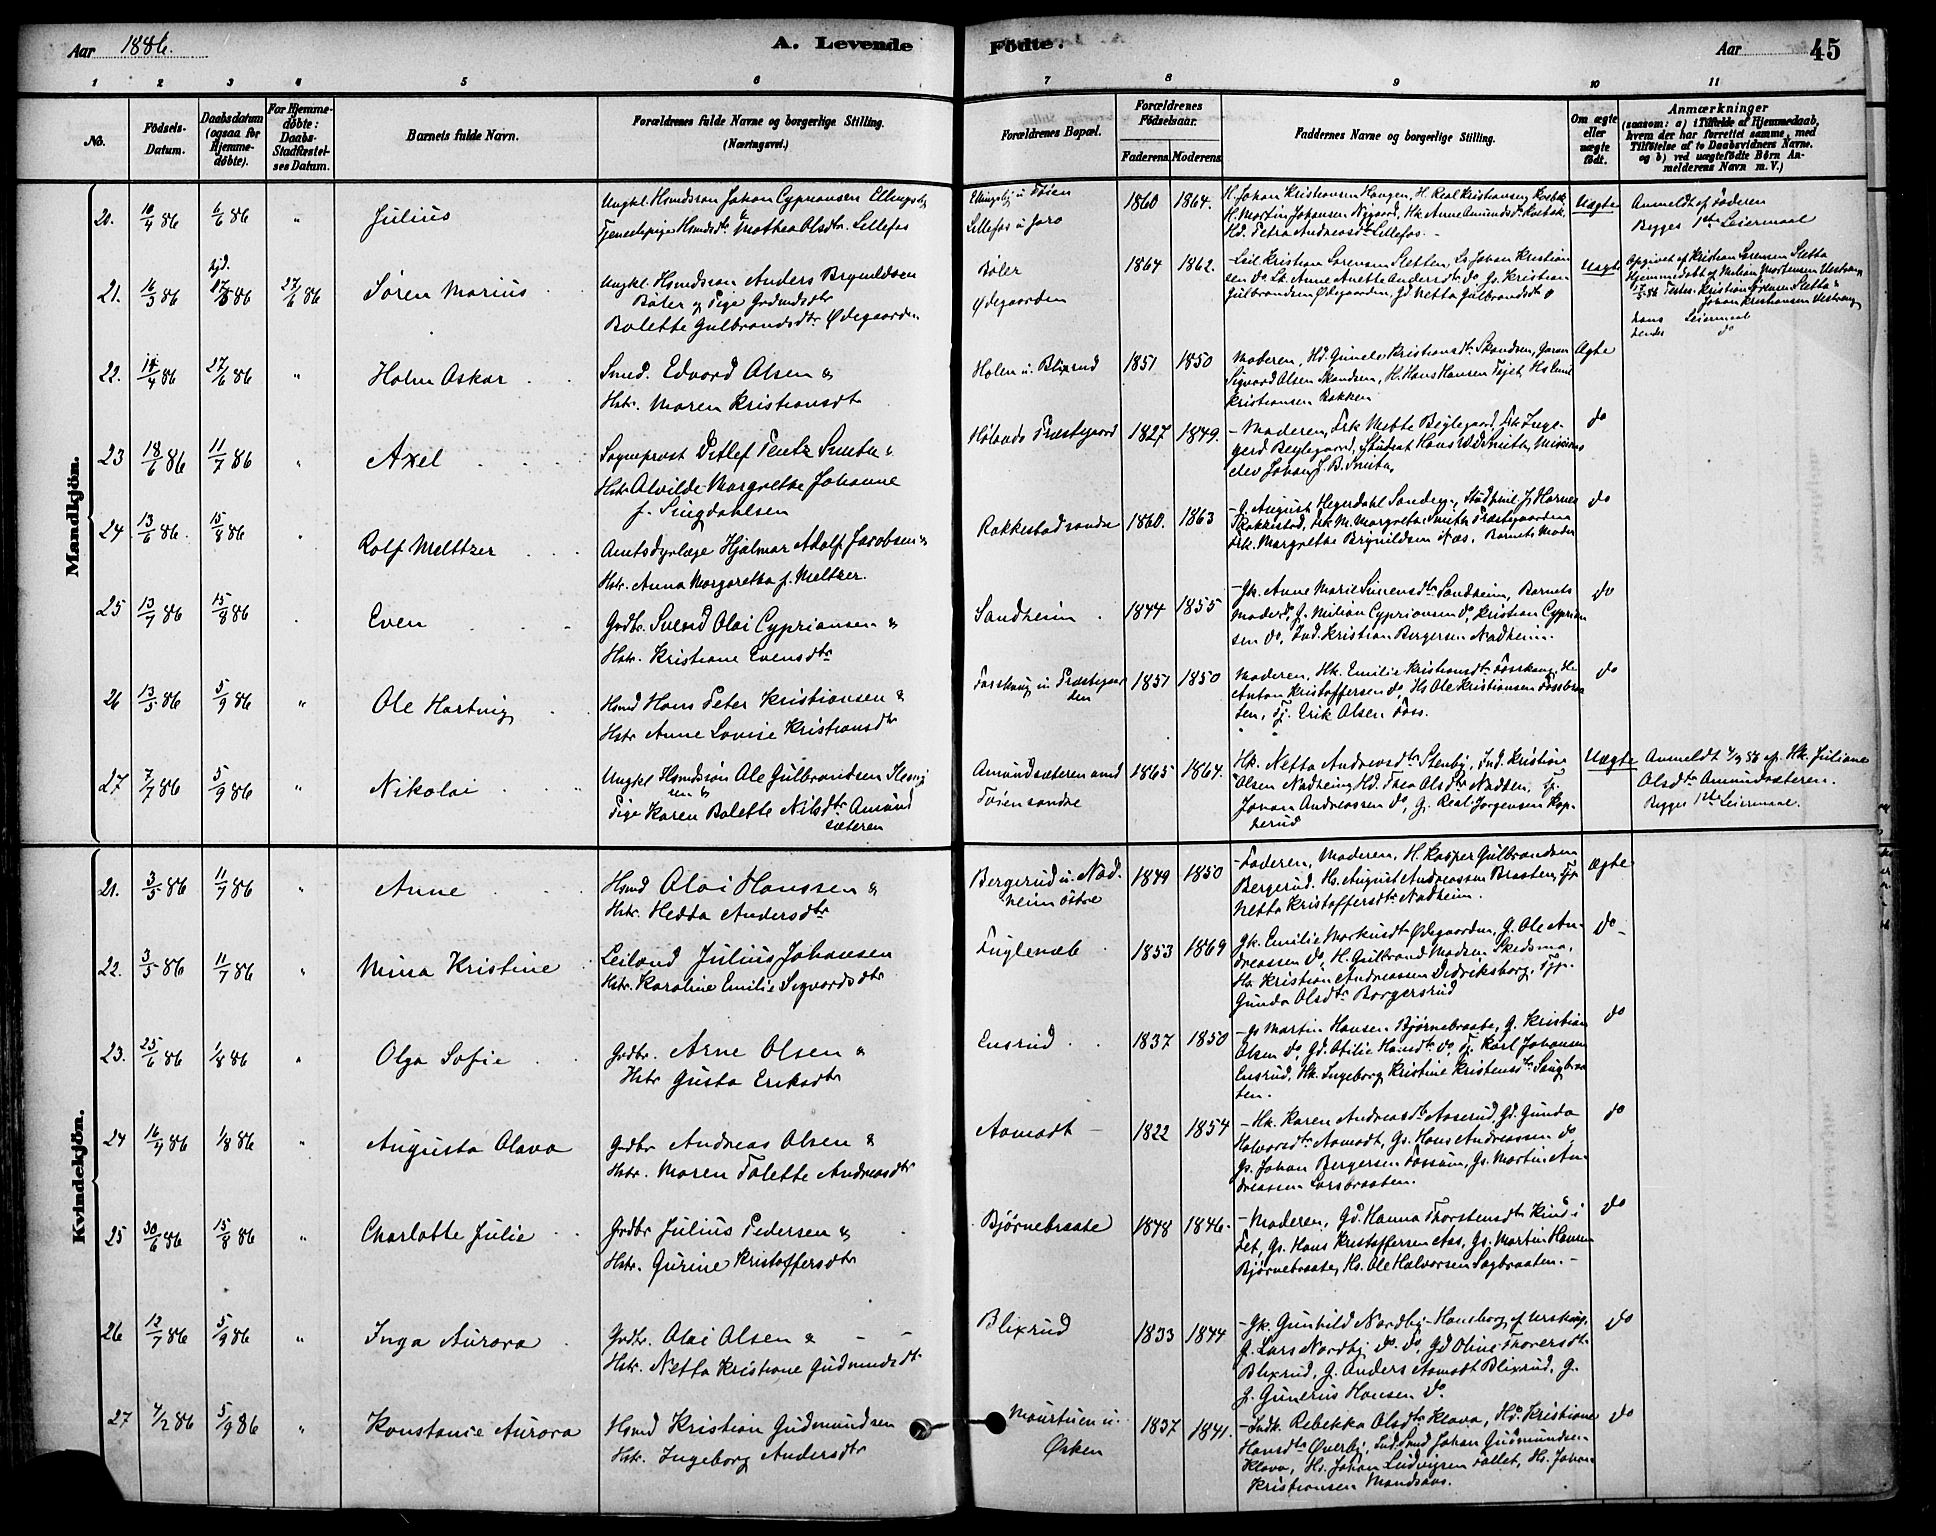 Aar 1886. A. Levende Fødte. Aar 45
1 2 3 4 5 6 7 8 9 10 11
No.
Födsels-Datum.
Daabsdatum (ogsaa for Hjemmedöbte).
For Hjemmedöbte: Daabs-Stadfæstelses Datum.
Barnets fulde Navn.
Forældrenes fulde Navne og borgerlige Stilling.
(Næringsvei.)
Forældrenes Bopæl.
Forældrenes Födselsaar.
Faderens. Moderens.
Faddernes Navne og borgerlige Stilling.
Om ægte eller uægte födt.
Anmærkninger
(saasom: a) i Tilfælde af Hjemmedaab,
hvem der har forrettet samme, med
Tilföielse af to Daabsvidners Navne.
og b) ved uægtefödte Börn Anmelderens Navn m. V.)
Mandkjön.
20. 10/4 86 6/6 86 " Julius
Ungkl. Hsmdssøn Johan Cypriansen Ellingsbj
Tjenestepige Hsmdsdtr. Mathea Olsdtr. Lillefos
Lillefos u Jaro
1860 1864.
H. Johan Kristiansen Haugen, H. Karl Kristiansen
H. Martin Johansen Nygaard, Hk Anne Amundsdtr
Hd. Petra Andreasdtr Lillefos.
Uægte
Anmeldt af Faderen
Begges 1ste Leiermaal
21. 16/3 86 hjd. 17/5 86 27/6 86 Søren Marius
Ungkl. Hsmdssøn Anders Brynildsen
Bøler og Pige Grdmdsdtr
Bolette Gulbrandsdtr Ødegaarden
Bøler
Ødegaarden
1864 1862.
Leil Kristian Sørensen Sletten, Ls Johan Kristian
sen do Lk. Anne Anette Andersdtr do, Gs Kristian
Gulbrandsen Ødegaarden, Gd Netta Gulbrandsdtr do
Uægte
Opgivet af Kristian Sørensen Sletta
Hjemmedøbt af Milian Mortensen
17/5 86 Testes: Kristian Sørensen Sletta &
Johan Kristiansen
hans Leiermaal
hendes do
22. 14/4 86 27/6 86 " Holm Oskar
Smed. Edvard Olsen &
Hstr. Maren Kristiansdtr
Holen u. Blixrud
1851 1850
Moderen, Hd. Gunele Kristiansdtr Skandsen,
Sigvard Olsen Skandsen, H. Hans Hansen Tojet, Hs Emil
Kristiansen Bakken
Ægte
23 18/6 86 11/7 86 " Axel
Sogneprest Ditlef Tentz Smith &
Hstr Alvilde Margrethe Johanne
f. Singdahlsen
Hølands Præstegaard
1827 1849.
Moderen, Frk Mette Beylegaard, Frk Inge-
gerd Beylegaard, Student Hans W. D. Smith,
elev Johan J. B. Smith,
do
24 13/6 86. 15/8 86 " Rolf Melttzer
Amtsdyrlæge Hjalmar Adolf Jacobsen &
Hstr. Anna Margaretha f. Meltzer.
Rakkestadsandre
1860. 1863
G. August Hegerdahl Sandegn, Stud.phil. J. Harnes
Rakkestad, Frk. M. Margreta Smith Præstegaarden
Frk. Margrethe Brynildsen Næs, Barnets Moder
do
25 13/7 86 15/8 86 . Even
Grdbr. Svend Olai Cypriansen &
Hstr. Kristiane Evensdtr
Sandheim
1844 1855
Gk. Anne Marie Simensdtr Sandheim, Barnets
Moder do, G. Milian Cypriansen do, Kristian Cyprian
sen do, Ind. Kristian Bergersen Nadheim.
do
26 13/5 86 5/9 86 " Ole Hartvig
Hsmd Hans Peter Kristiansen &
Hstr Anne Lovise Kristiansdtr
Forskaug u Præstegaar
den
1851 1850
Moderen, Hk. Emilie Kristiansdtr Fosskaug, Hs
Anton Kristoffersen do, Hs Ole Kristiansen
ten, Tj. Erik Olsen Foss.
do
27 7/7 86 5/9 86 " Nikolai
Ungkl Hsmdssøn Ole Gulbrandsen
sen &
Pige Karen Bolette Nilsdtr Amund
sæteren
Amundsæteren
Tøiensandre
1865 1864.
Hk. Netta Andreasdtr Stenby, Ind. Kristian
Olsen Nadheim, Hd. Thea Olsdtr Nadhen, Tj.
Johan Andreassen do, G. Karl Jørgensen Kop-
herud
Uægte
Anmeldt 4/9 86 af Hk. Juliane
Olsdtr Amundsæteren.
Begges 1ste Leiermaal.
Kvindekjön.
21. 3/5 86 11/7 86 " Anne
Hsmd Olai Hanssen &
Hstr. Hedda Andersdtr
Bergerud u. Nad-
heim östre
1849 1850
Faderen, Moderen, H. Kasper Gulbrandsen
Bergerud. Hs. August Andreassen Braaten, Tjp.
Netta Kristoffersdtr Nadheim.
Ægte
22. 3/5 86 11/7 86 " Mina Kristine
Leiland Julius Johansen
Hstr. Karoline Emilie Sigvardsdtr
Fuglenæb
1853 1869
Gk. Emilie Markusdtr Ødegaarden, G. Ole An-
dreassen do, H. Gulbrand Madsen Skedsmo,
Hs. Kristian Andreassen Didriksborg, Tjp.
Gunda Olsdtr Borgersrud
do
23. 25/6 86 1/8 86 " Olga Sofie
Grdbr. Arne Olsen &
Hstr Gusta Eriksdtr
Ensrud
1837 1850
Gs Martin Hansen Bjørnebraate, G. Kristian
Olsen do, Gd. Otilie Hansdtr do, Tj. Karl Johansen
Ensrud, Hk. Ingeborg Kristine Kristensdtr Saugbraa
ten.
do
24 16/4 86 1/8 86 " Augusta Olava
Grdbr Andreas Olsen &
Hstr. Maren Tolette Andreasdtr
Aamodt
1822 1854
Hk. Karen Andreasdtr Aaserud, Gd. Gunda
Halvorsdtr Aamodt, Gs. Hans Andreassen do,
Gs. Johan Bergersen Fossum, Gs. Martin An-
dreassen Larsbraaten.
do
25 30/6 86 15/8 86 " Charlotte Julie
Grdbr Julius Pedersen &
Hstr. Gurine Kristoffersdtr
Bjørnebraate
1848 1846.
Moderen, Gd. Hanna Thorstensdtr Kind i
Fet, Gs. Hans Kristoffersen Aas, Gs. Martin Hansen
Bjørnebraate, Hs. Ole Halvorsen Sagbraaten.
do
26 12/7 86 5/9 86 " Inga Aurora
Grdbr. Olai Olsen &
Hstr. Netta Kristiane Gudmundsdtr
Blixrud
1833 1844
Gk. Gunhild Nordby Haneborg af Urskoug,
G. Lars Nordby do. do, Gd Oline Thoversdtr
Blixrud, G. Anders Aamodt Blixrud, G.
G. Gunerius Hansen do.
do
27 4/2 86 5/9 86 " Konstanse Aurora
Hsmd Kristian Gudmundsen
Hstr. Ingeborg Andersdtr
Maurtuen u.
Ørken
1837 1841.
Indk. Rebekka Olsdtr Klava, Hd. Kristiane
Hansdtr Øverby, Ind. Smd Johan Gudmundsen
Klava, Hs. Johan Ludvigsen Fallet, Hs. Johan
Kristiansen Mandsaas.
do